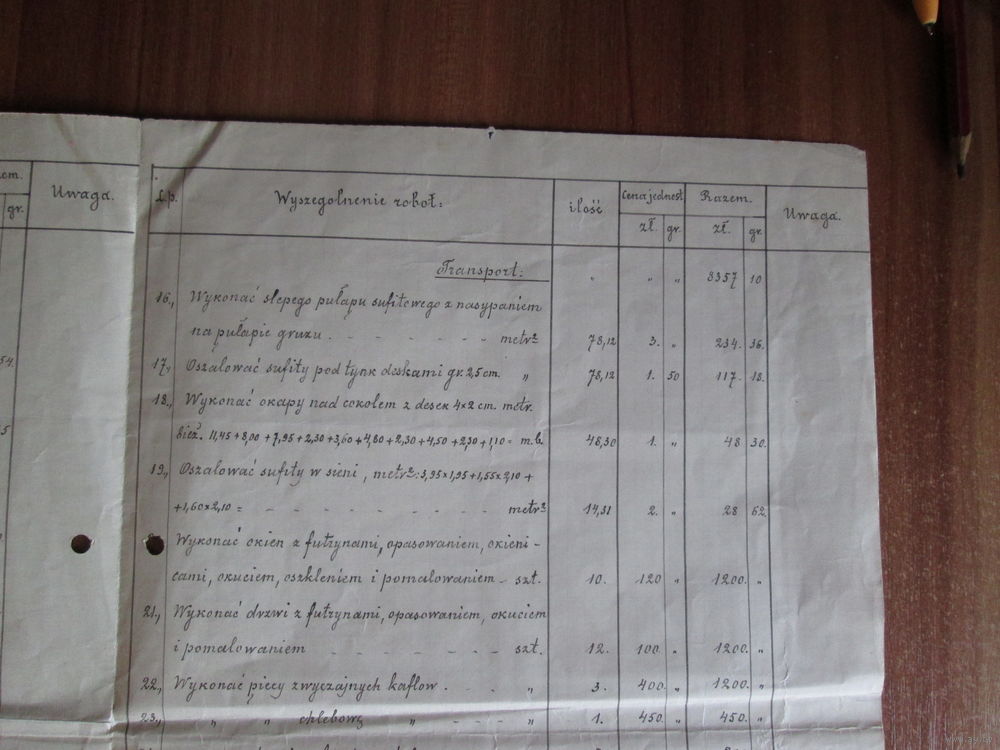 em.
gr.
Uwaga.
54.
5
L.p. Wyszególnienie robot: ilość Cena jednost. Razem. Uwaga.
zł. gr. zł. gr.
Transport: " " " 3357 10
16., Wykonać ślepego pułapu sufitowego z nasypaniem
na pułapie gruzu . - - - - - - - metr² 78,12 3. " 234. 36.
17., Oszalować sufity pod tynk deskami gr. 2,5 cm. " 78,12 1. 50 117. 18.
18., Wykonać okapy nad cokołem z desek 4×2 cm. metr.
bież. 11,45 + 8,00 + 7,95 + 2,30 + 3,60 + 4,80 + 2,30 + 4,50 + 2,30 + 1,10 = m.b. 48,30 1. " 48 30.
19., Oszalować sufity w sieni, metr²: 3,95×1,95 + 1,55×2,10 +
+ 1,60×2,10 = - - - - - - - - - metr² 14,31 2. " 28 62.
Wykonać okien z futrynami, opasowaniem, okieni -
cami, okuciem, oszkleniem i pomalowaniem - szt. 10. 120 " 1200. "
21., Wykonać drzwi z futrynami, opasowaniem, okuciem
i pomalowaniem - - - - - - - szt. 12. 100. " 1200. "
22., Wykonać piecy zwyczajnych kaflow . - . " 3. 400. " 1200. "
23., " " chlebowy " - - - - " 1. 450. " 450. "